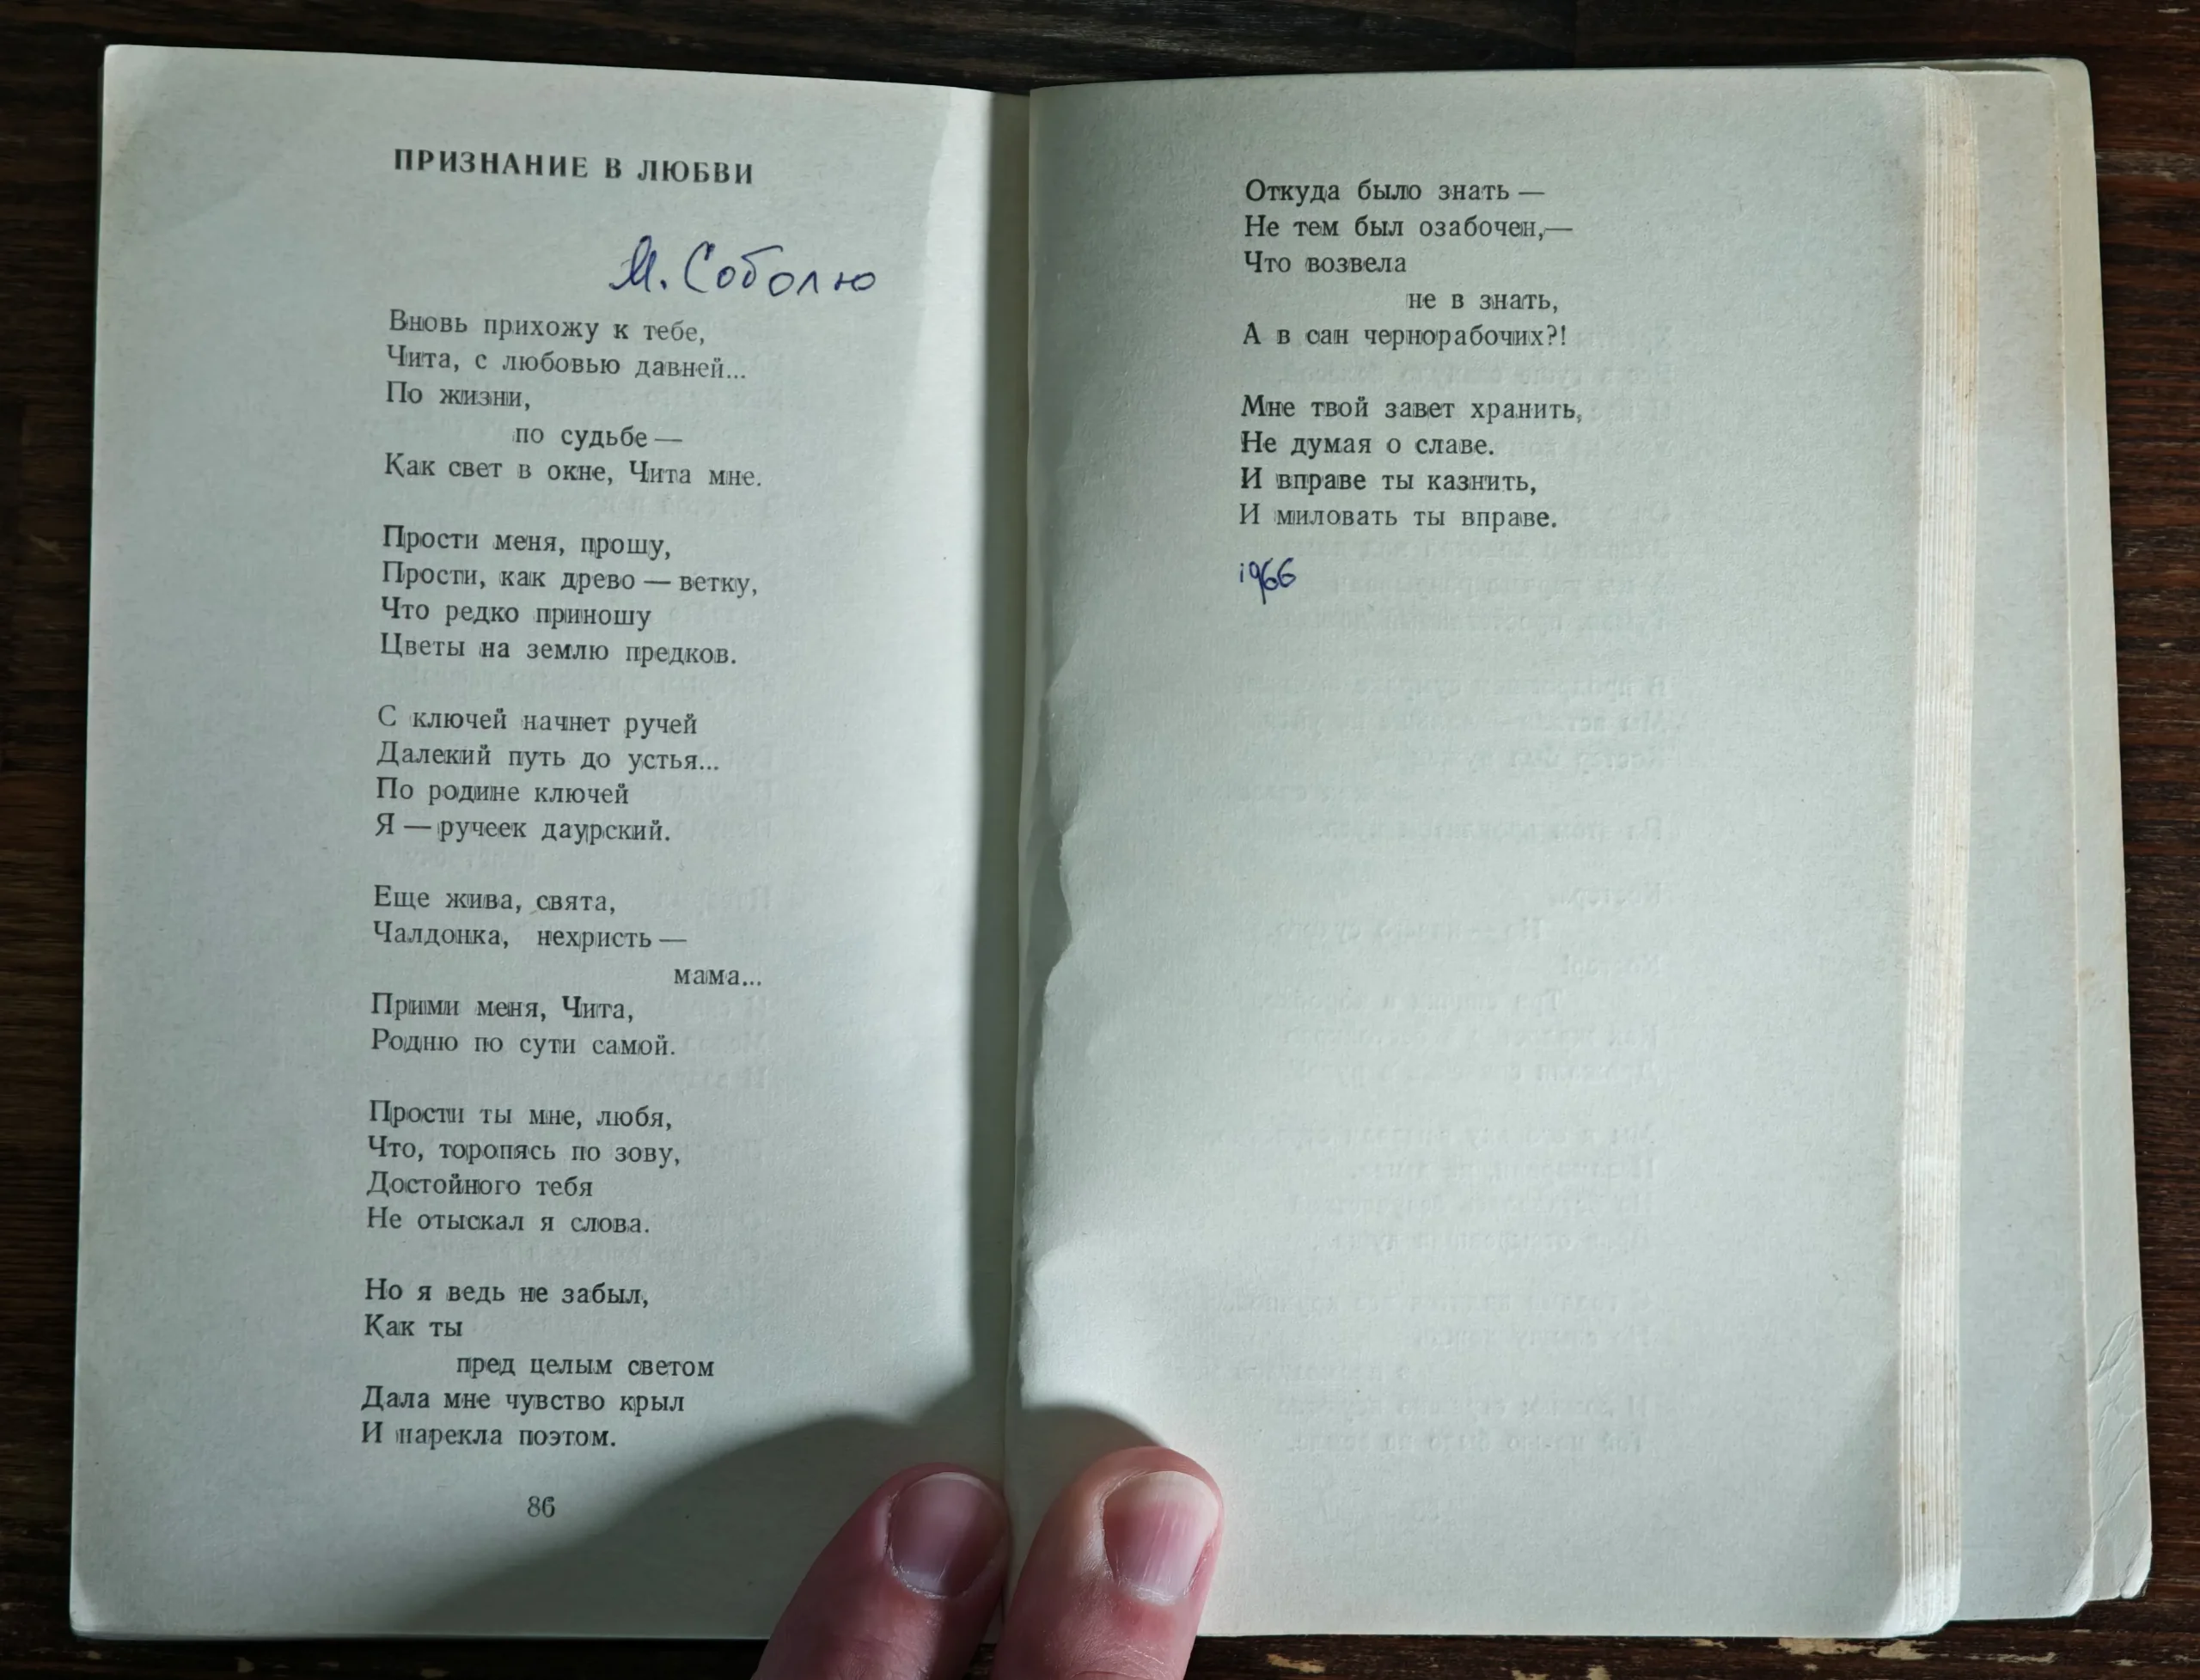 ПРИЗНАНИЕ В ЛЮБВИ
М. Соболю
Вновь прихожу к тебе,
Чита, с любовью давней...
По жизни,
по судьбе —
Как свет в окне, Чита мне.
Прости меня, прошу,
Прости, как древо — ветку,
Что редко приношу
Цветы на землю предков.
С ключей начнет ручей
Далекий путь до устья...
По родине ключей
Я — ручеек даурский.
Еще жива, свята,
Чалдонка, нехристь —
мама...
Прими меня, Чита,
Родню по сути самой.
Прости ты мне, любя,
Что, торопясь по зову,
Достойного тебя
Не отыскал я слова.
Но я ведь не забыл,
Как ты
пред целым светом
Дала мне чувство крыл
И нарекла поэтом.
86
Откуда было знать —
Не тем был озабочен,—
Что возвела
не в знать,
А в сан чернорабочих?!
Мне твой завет хранить,
Не думая о славе.
И вправе ты казнить,
И миловать ты вправе.
1966